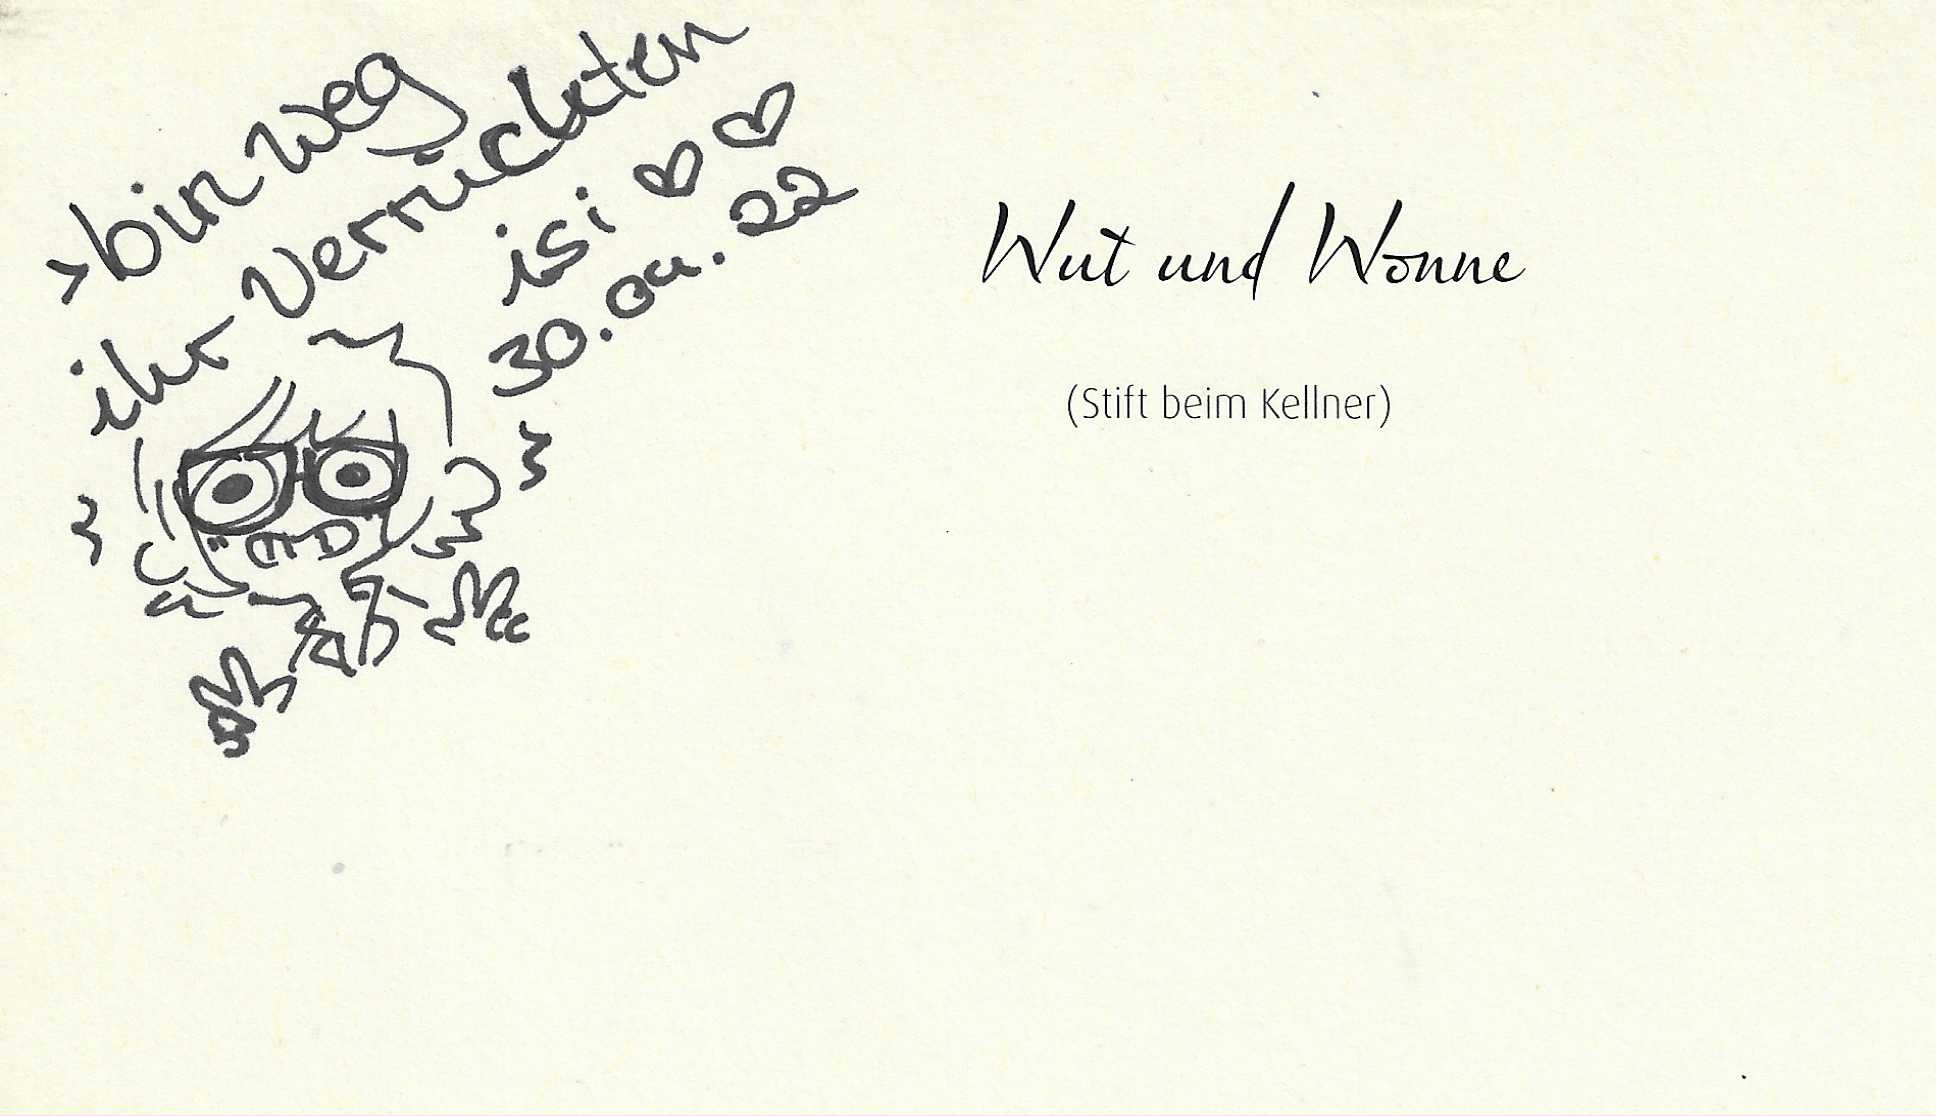 >bin weg
ihr Verrückten
isi ♡♡
30.04.22
Wut und Wonne
(Stift beim Kellner)